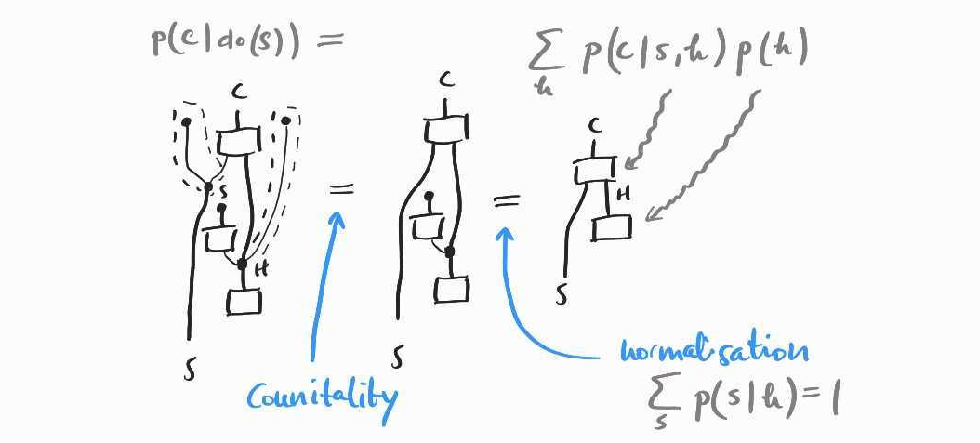 p(c|do(s)) =
∑ₕ p(c|s,h) p(h)
C
C
C
S
H
=
=
H
S
S
S
Counitality
normalisation
∑ₛ p(s|h) = 1